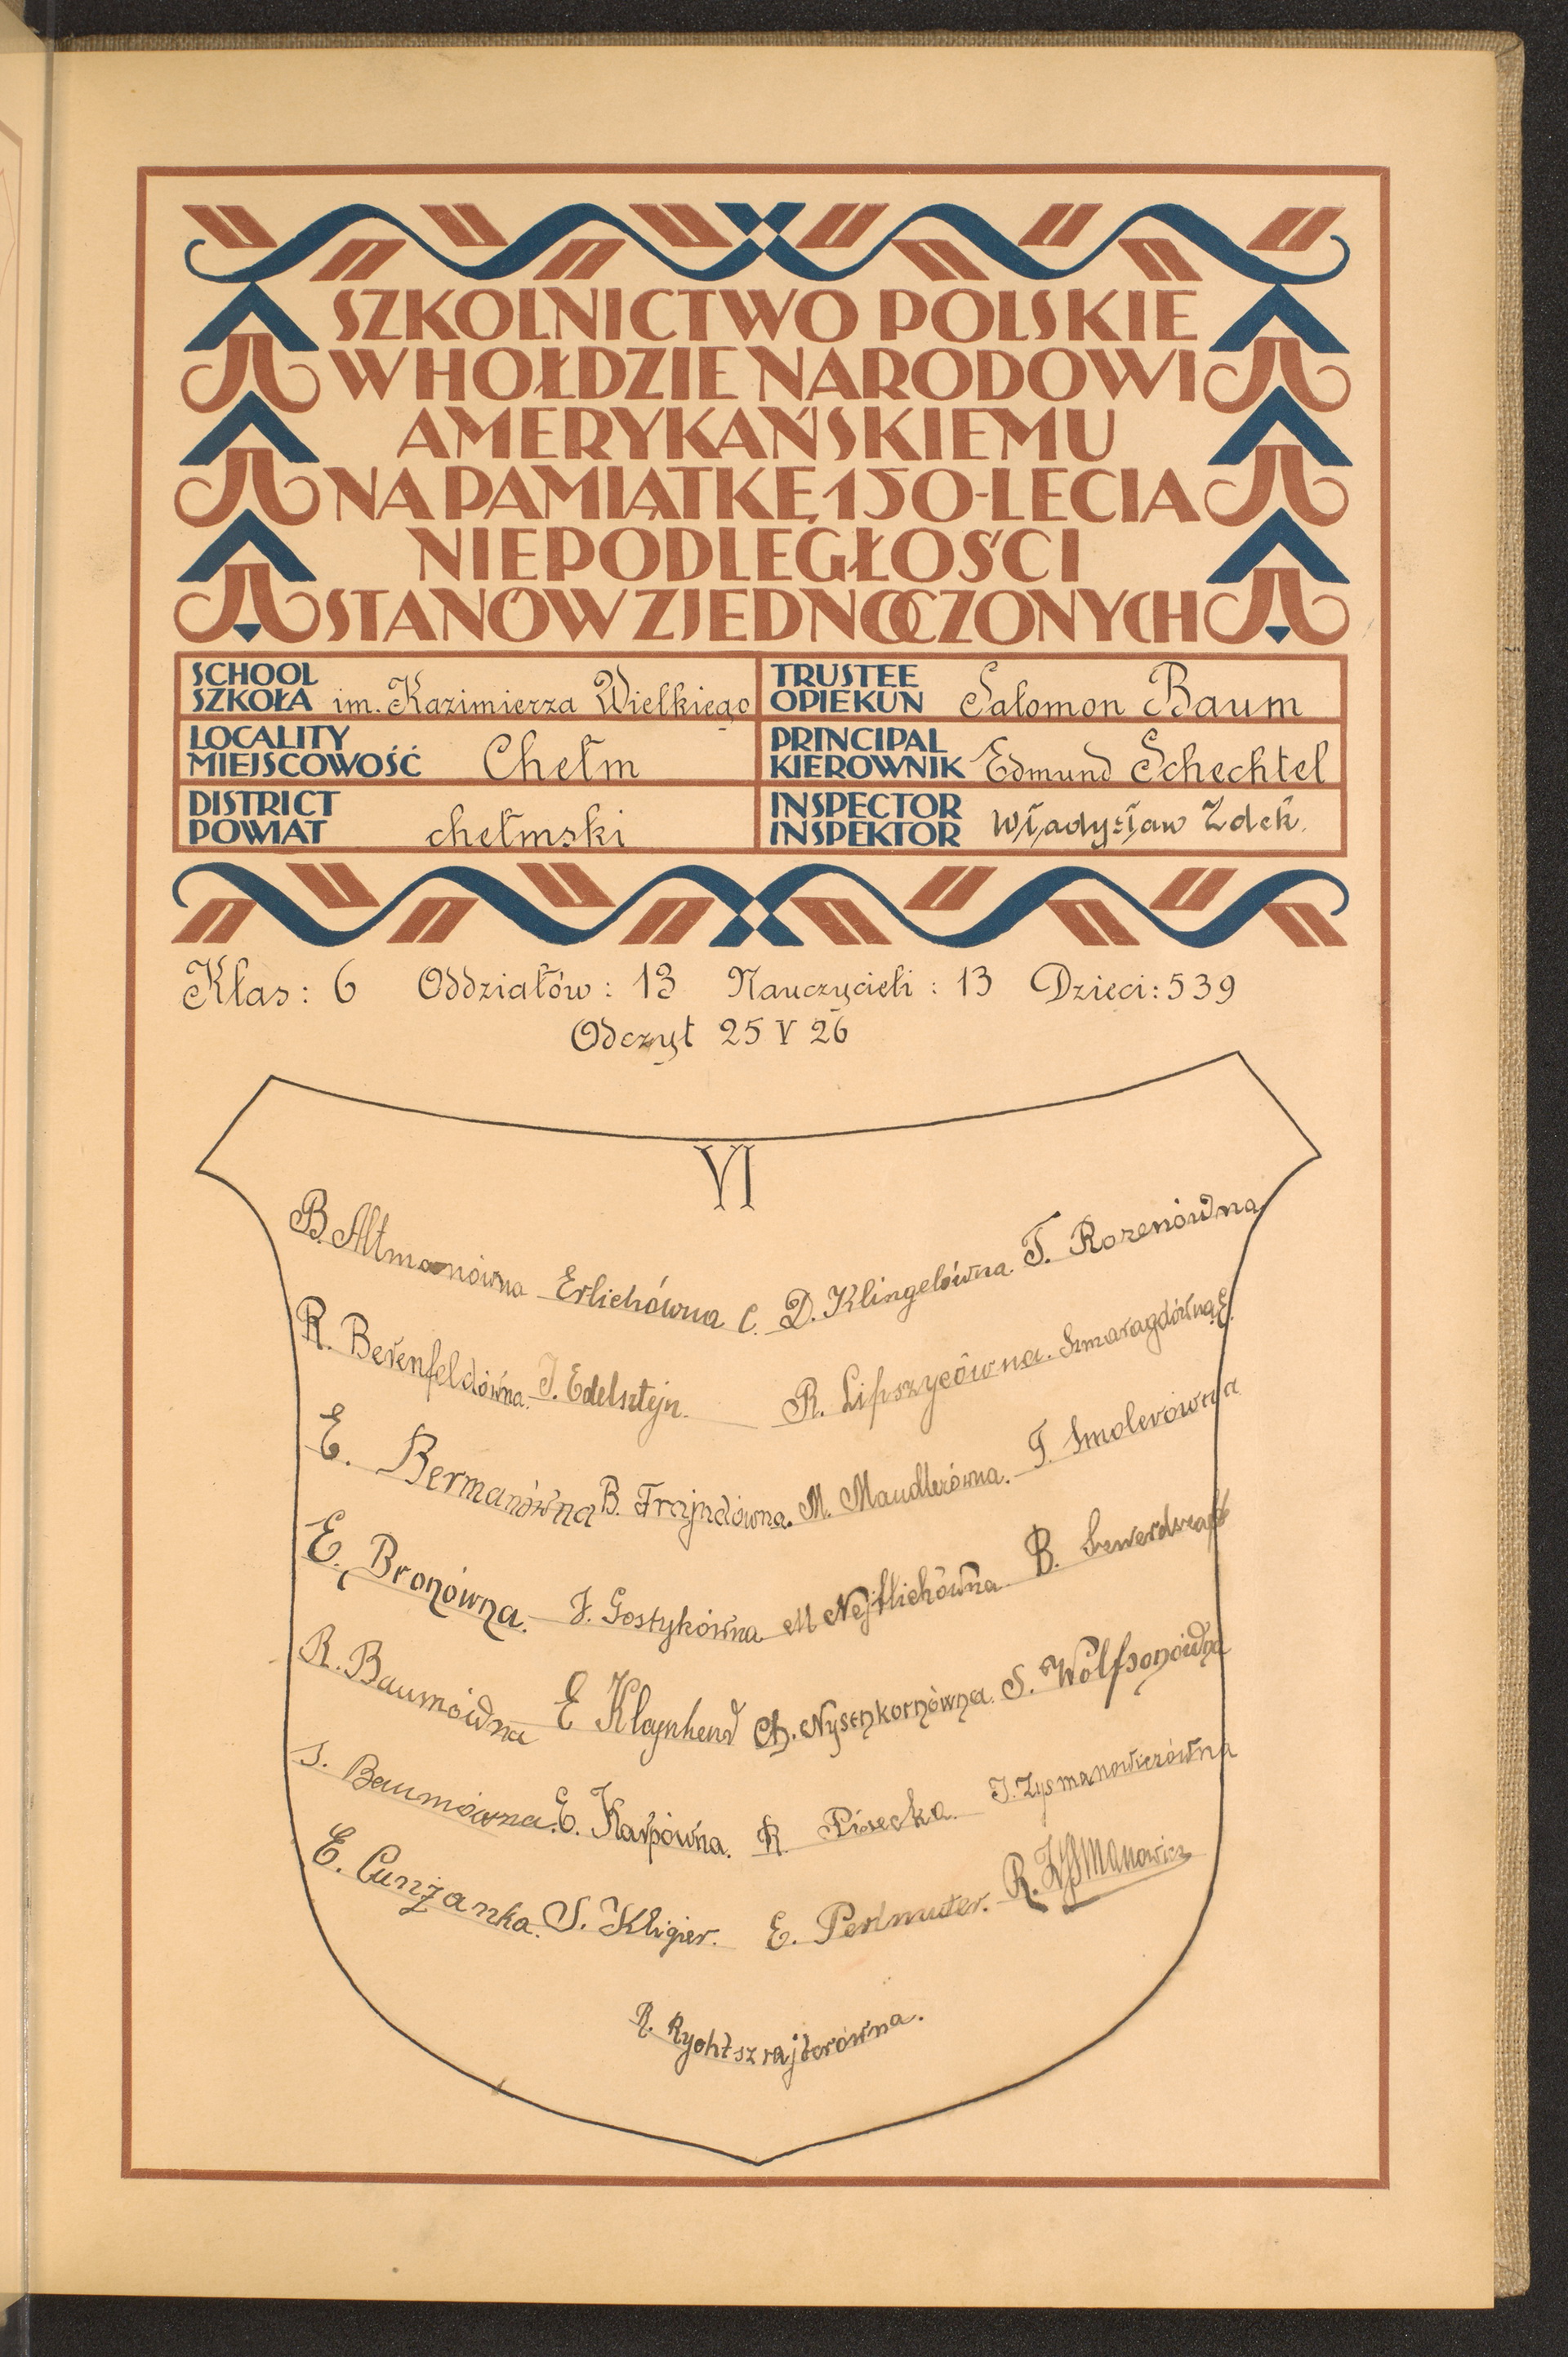 SZKOLNICTWO POLSKIE
W HOŁDZIE NARODOWI
AMERYKAŃSKIEMU
NA PAMIĄTKĘ 150-LECIA
NIEPODLEGŁOŚCI
STANÓW ZJEDNOCZONYCH
SCHOOL
SZKOŁA im. Kazimierza Wielkiego
TRUSTEE
OPIEKUN Salomon Baum
LOCALITY
MIEJSCOWOŚĆ Chełm
PRINCIPAL
KIEROWNIK Edmund Schechtel
DISTRICT
POWIAT chełmski
INSPECTOR
INSPEKTOR Władysław Zdek.
Klas: 6 Oddziałów: 13 Nauczycieli: 13 Dzieci: 539
Odczyt 25 V 26
VI
B. Altmanówna Erlichówna C. D. Klingelówna T. Rozenówna
R. Berenfeldówna. I. Edelsztejn. R. Lipszycówna. Szmaragdówna E.
E. Bermanówna B. Frajndówna. M. Mandlerówna. T. Smolerówna
E. Bronówna. J. Gostykówna M Nejtlichówna B. Szwerdszarf
R. Baumówna E Klajnhend Ch. Nysenkornówna. S. Wolfsonówna
S. Baumówna. E. Karpówna. R. Pisecka. I. Zysmanowiczówna
E. Cunżanka. S. Kligier. E. Perlmuter. R. Zysmanowicz
R. Rychtszrajterówna.